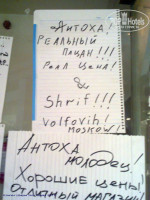 Антоха!
Реальный
пацан!!!
Реал цена!
&
Shrif!!!
Volfovih!
Moskow!
Антоха
молодец!
Хорошие цены!
Отличный магазин